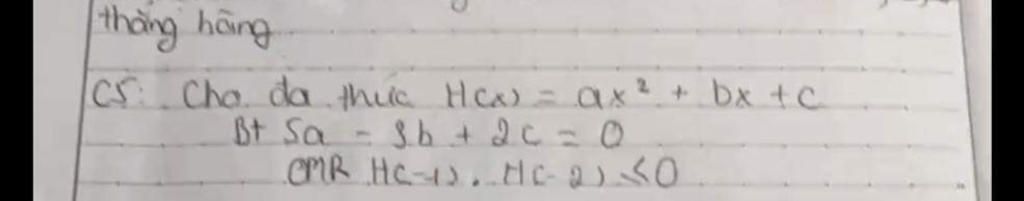 thẳng hãng
C5: Cho đa thức H(x) = ax² + bx + c
Bt 5a - 3b + 2c = 0
CMR H(-1). H(-2) ≤0